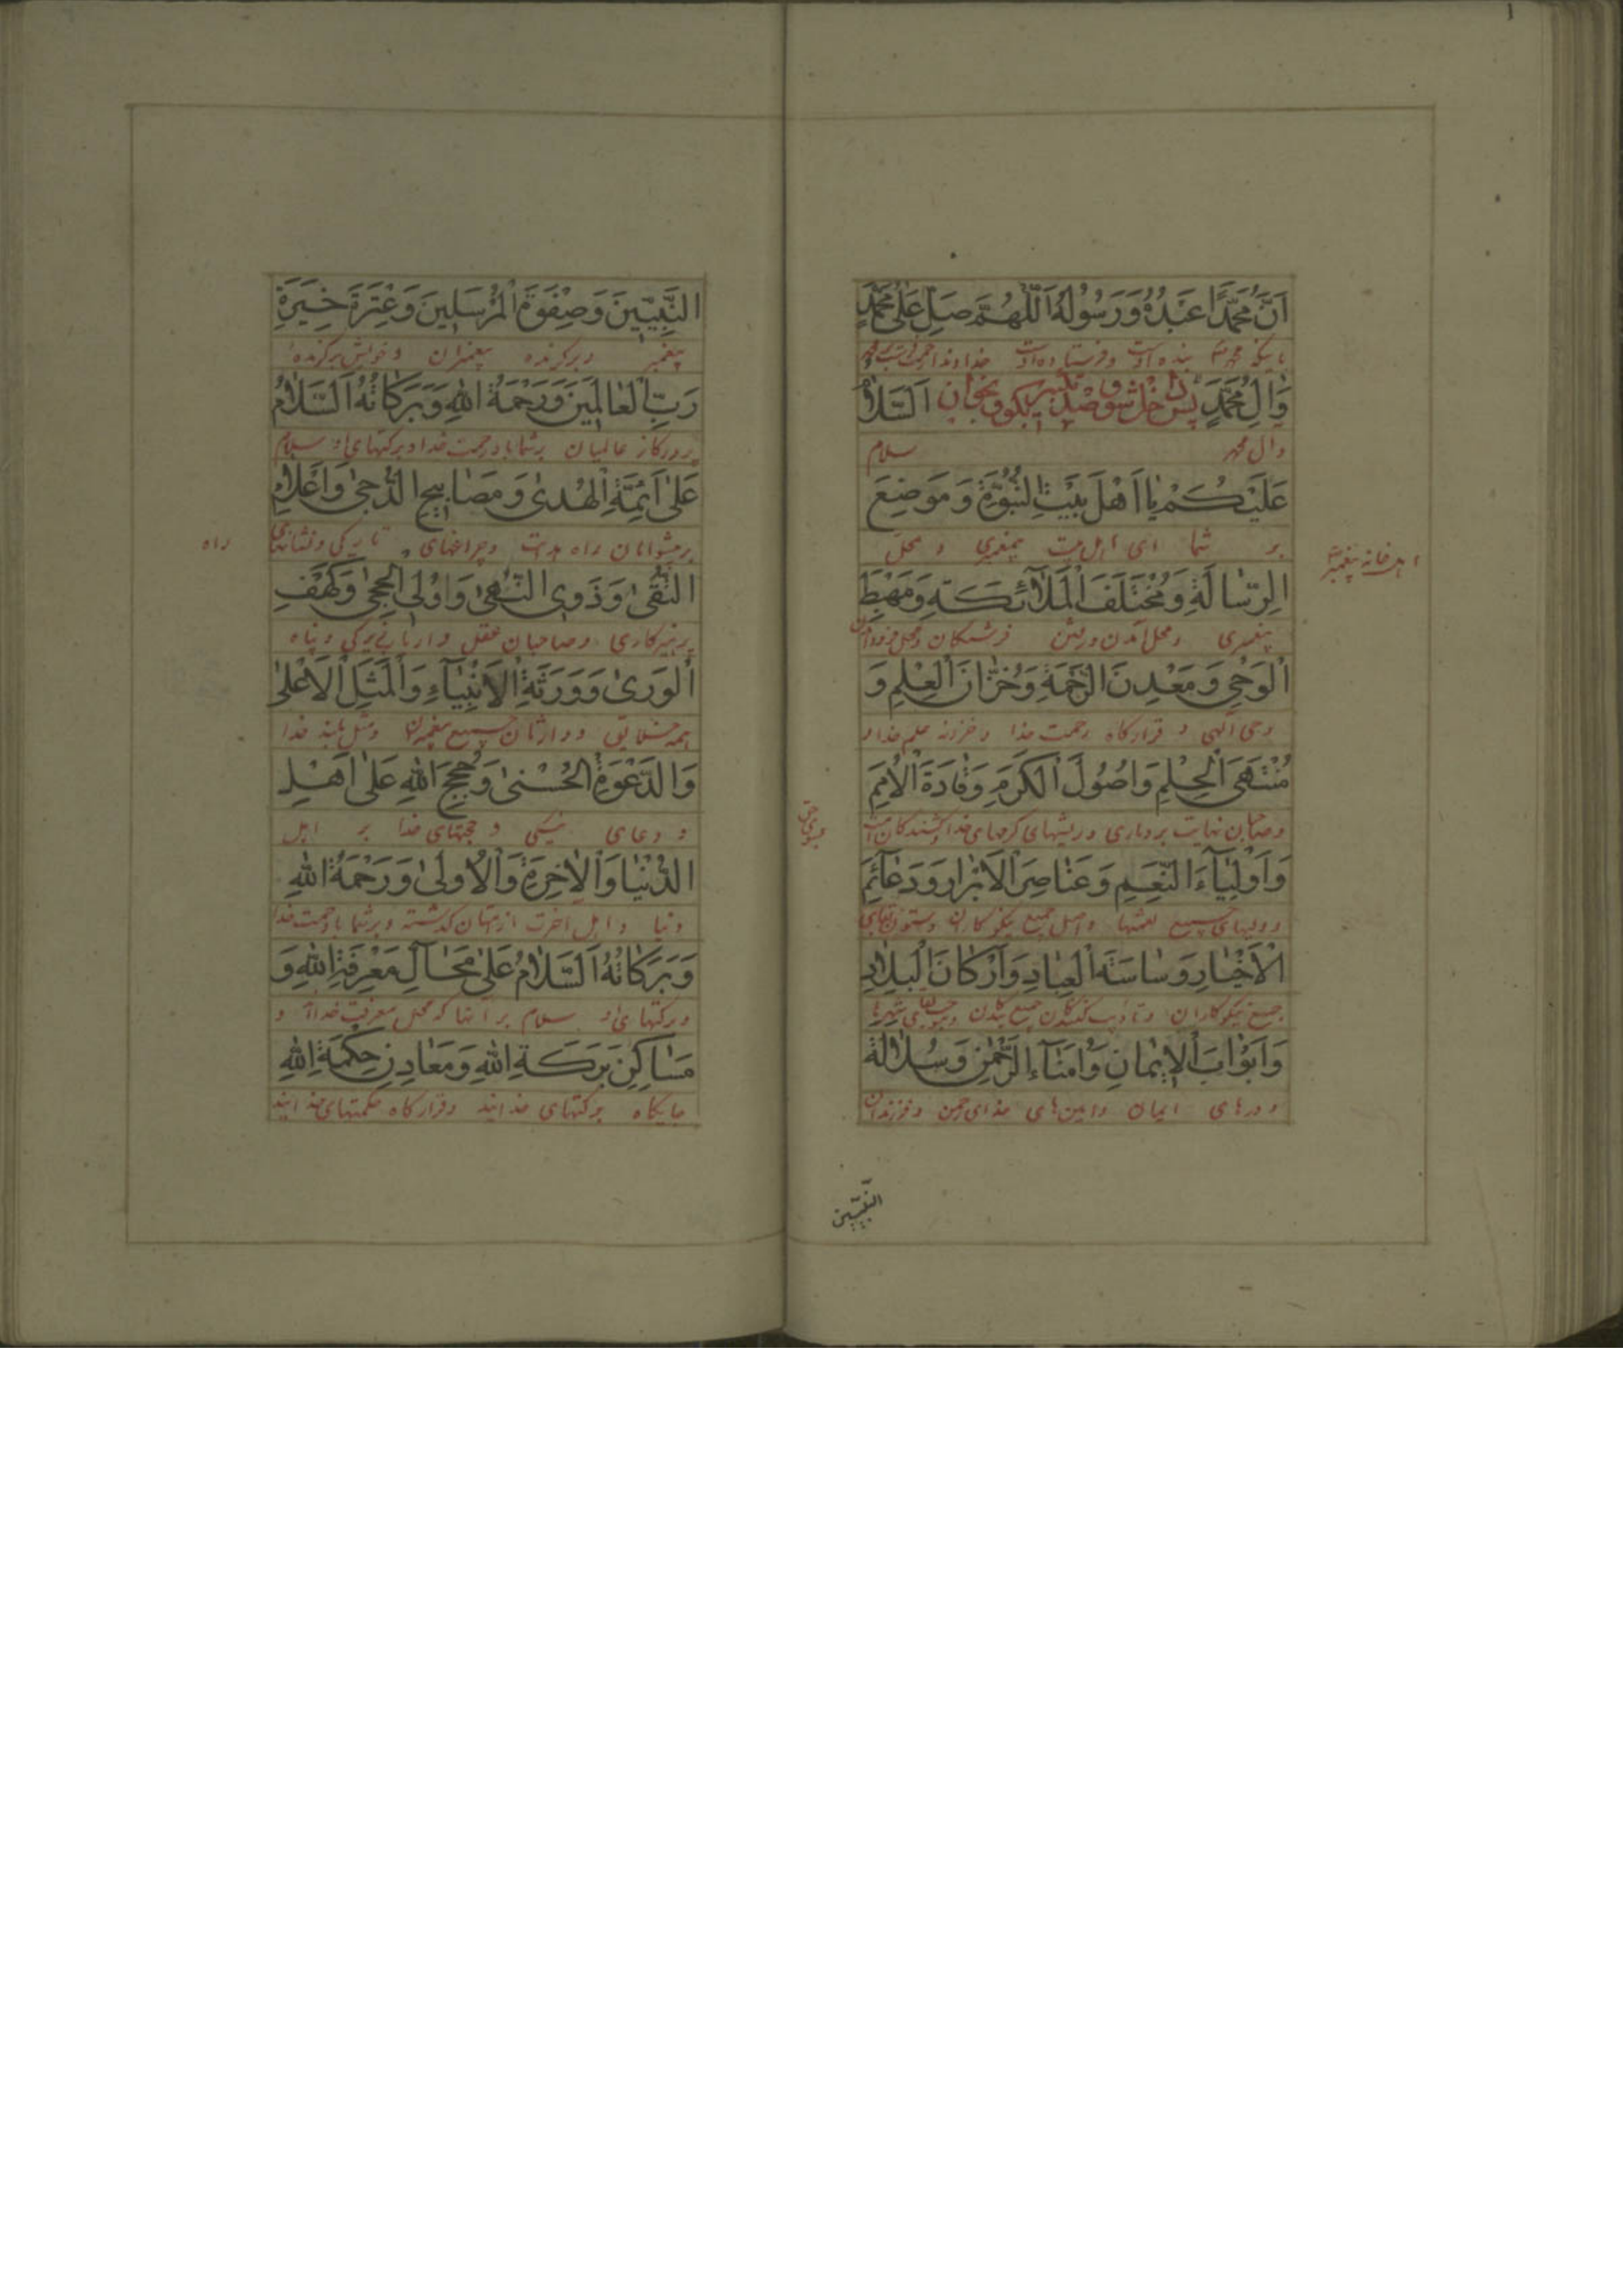 اَنَّ مُحَمَّدًا عَبْدُهُ وَرَسُولُهُ اَللّٰهُمَّ صَلِّ عَلٰى مُحَمَّدٍ
وَاٰلِ مُحَمَّدٍ پس داخل شو و صد تکبیر بگو و بخوان اَلسَّلَامُ
وال محمد سلام
عَلَيْكُمْ يَا اَهْلَ بَيْتِ النُّبُوَّةِ وَمَوْضِعَ
بر شما ای اهل بیت پیغمبری و محل
اهل خانه پیغمبر
الرِّسَالَةِ وَمُخْتَلَفَ الْمَلَآئِكَةِ وَمَهْبِطَ
پیغمبری و محل آمدن و رفتن فرشتکان و محل
اَلْوَحْيِ وَمَعْدِنَ الرَّحْمَةِ وَخُزَّانَ الْعِلْمِ وَ
وحی آلهی و قرارکاه رحمت خدا و خزانه علم خدا و
مُنْتَهَى الْحِلْمِ وَاُصُولَ الْكَرَمِ وَقَادَةَ الْاُمَمِ
نهایت بردباری و ریشهای کرمهای خدا
وَاَوْلِيَآءَ النِّعَمِ وَعَنَاصِرَ الْاَبْرَارِ وَدَعَآئِمَ
جمیع نعمتها و اصل جمیع نیکوکاران
الْاَخْيَارِ وَسَاسَةَ الْعِبَادِ وَاَرْكَانَ الْبِلَادِ
جمیع نیکوکاران
وَاَبْوَابَ الْاِيمَانِ وَاُمَنَآءَ الرَّحْمٰنِ وَسُلَالَةَ
و درهای ایمان و امین‌های خدای رحمن و فرزندان
النَّبِيّينَ
النَّبِيّينَ وَصِفْوَةَ الْمُرْسَلِينَ وَعِتْرَةَ خِيَرَةِ
پیغمبر و برکزیده پیغمبران و خویش برکزیده
رَبِّ الْعَالَمِينَ وَرَحْمَةُ اللهِ وَبَرَكَاتُهُ اَلسَّلَامُ
پروردکار عالمیان بر شما باد رحمت خدا و برکتهای او سلام
عَلٰى اَئِمَّةِ الْهُدٰى وَمَصَابِيحِ الدُّجٰى وَاَعْلَامِ
بر پیشوایان راه هدایت و چراغهای تاریکی و نشانهای
راه
التُّقٰى وَذَوِى النُّهٰى وَاُولِى الْحِجٰى وَكَهْفِ
پرهیزکاری و صاحبان عقل و ارباب زیرکی و پناه
اَلْوَرٰى وَوَرَثَةِ الْاَنْبِيَآءِ وَالْمَثَلِ الْاَعْلٰى
همه خلایق و وارثان جمیع پیغمبران و مثل بلند خدا
وَالدَّعْوَةِ الْحُسْنٰى وَحُجَجِ اللهِ عَلٰى اَهْلِ
و دعای نیکی و حجتهای خدا بر اهل
الدُّنْيَا وَالْاٰخِرَةِ وَالْاُولٰى وَرَحْمَةُ اللهِ
دنیا و اهل آخرت از امتهان کذشته و بر شما باد رحمت خدا
وَبَرَكَاتُهُ اَلسَّلَامُ عَلٰى مَحَالِّ مَعْرِفَةِ اللهِ وَ
و برکتهای او سلام بر آنها که محل معرفت خدا و
مَسَاكِنِ بَرَكَةِ اللهِ وَمَعَادِنِ حِكْمَةِ اللهِ
جایکاه برکتهای خدایند و قرارکاه حکمتهای خدایند